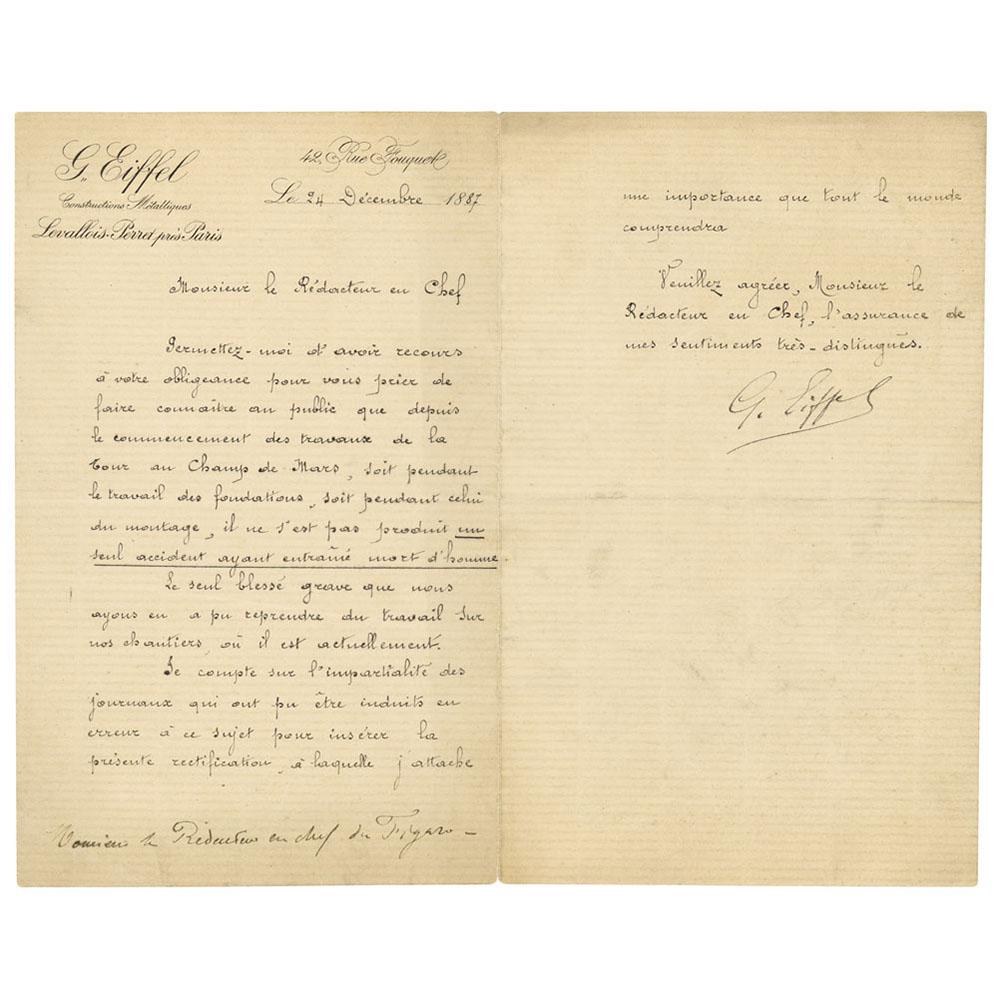 G. Eiffel
Constructions Métalliques
Levallois-Perret près Paris
42, Rue Fouquet
Le 24 Décembre 1887
Monsieur le Rédacteur en Chef
Permettez-moi d'avoir recours
à votre obligeance pour vous prier de
faire connaître au public que depuis
le commencement des travaux de la
Tour au Champ de Mars, soit pendant
le travail des fondations, soit pendant celui
du montage, il ne s'est pas produit un
seul accident ayant entraîné mort d'homme
Le seul blessé grave que nous
ayons eu a pu reprendre du travail sur
nos chantiers, où il est actuellement.
Je compte sur l'impartialité des
journaux qui ont pu être induits en
erreur à ce sujet pour insérer la
présente rectification, à laquelle j'attache
Monsieur le Rédacteur en chef du Figaro -
une importance que tout le monde
comprendra
Veuillez agréer, Monsieur le
Rédacteur en Chef, l'assurance de
mes sentiments très-distingués.
G. Eiffel